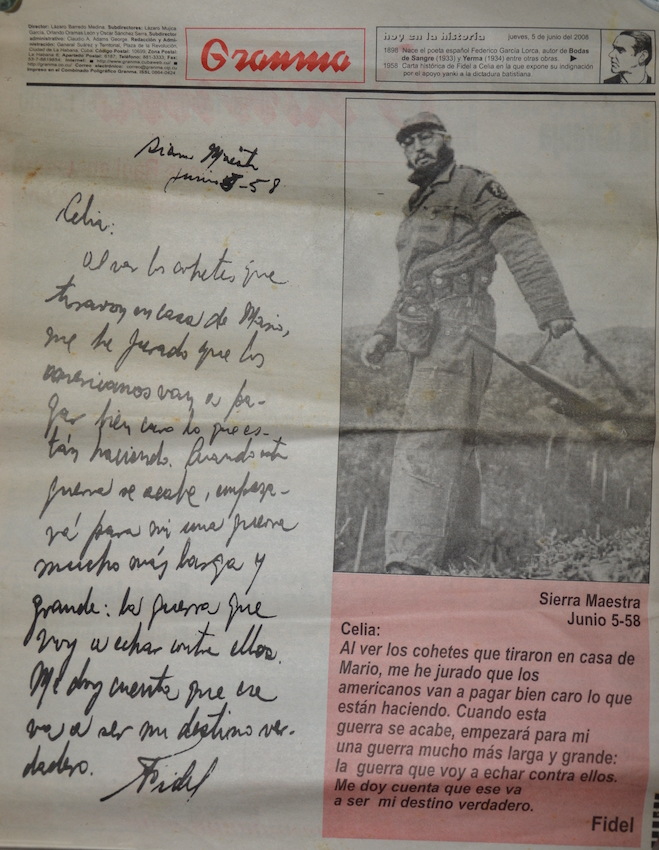 Director: Lázaro Barredo Medina. Subdirectores: Lázaro Mujica
García, Orlando Oramas León y Oscar Sánchez Serra. Subdirector
administrativo: Claudio A. Adams George. Redacción y Admi-
nistración: General Suárez y Territorial, Plaza de la Revolución,
Ciudad de La Habana, Cuba. Código Postal: 10699. Zona Postal:
La Habana 6. Apartado Postal: 6187. Teléfono: 881-3333. Fax:
Impreso en el Combinado Poligráfico Granma. ISSN 0864-0424
Granma
hoy en la historia
jueves, 5 de junio del 2008
1898 Nace el poeta español Federico García Lorca, autor de Bodas
de Sangre (1933) y Yerma (1934) entre otras obras. ▶
1958 Carta histórica de Fidel a Celia en la que expone su indignación
por el apoyo yanki a la dictadura batistiana.
Sierra Maestra
Junio 5-58
Celia:
Al ver los cohetes que
tiraron en casa de Mario,
me he jurado que los
americanos van a pa-
gar bien caro lo que es-
tán haciendo. Cuando esta
guerra se acabe, empeza-
rá para mi una guerra
mucho más larga y
grande: la guerra que
voy a echar contra ellos.
Me doy cuenta que ese
va a ser mi destino ver-
dadero.
Fidel
Sierra Maestra
Junio 5-58
Celia:
Al ver los cohetes que tiraron en casa de
Mario, me he jurado que los
americanos van a pagar bien caro lo que
están haciendo. Cuando esta
guerra se acabe, empezará para mi
una guerra mucho más larga y grande:
la guerra que voy a echar contra ellos.
Me doy cuenta que ese va
a ser mi destino verdadero.
Fidel